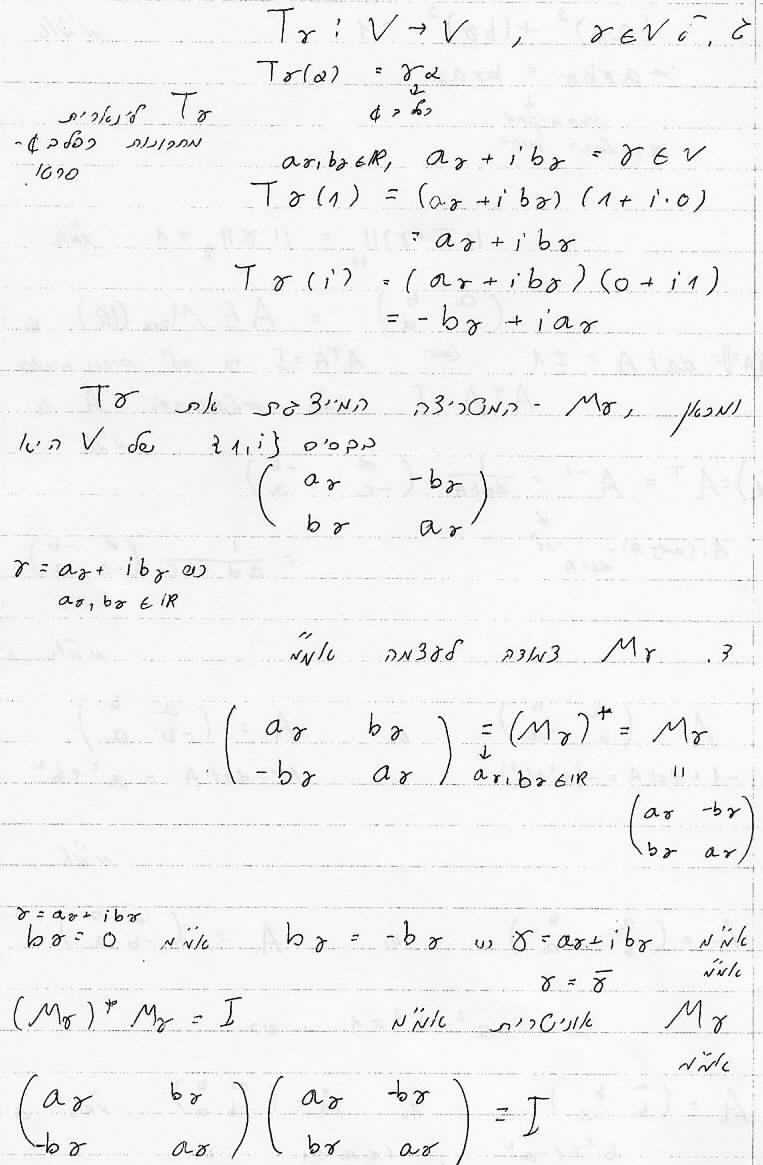 ג. יהי γ ∈ V , Tγ : V → V
Tγ(α) = γα
↓
כפל ב ¢
Tγ לינארית
מתכונות הכפל ב ¢-
aγ, bγ ∈ IR, aγ + i bγ = γ ∈ V
Tγ(1) = (aγ + i bγ)(1 + i·0)
= aγ + i bγ
Tγ(i) = (aγ + i bγ)(0 + i1)
= -bγ + i aγ
ומכאן, Mγ - המטריצה המייצגת את Tγ
בבסיס {1, i} של V היא
( aγ -bγ )
( bγ aγ )
γ = aγ + i bγ כש
aγ, bγ ∈ IR
ד. Mγ צמודה לעצמה אמ"מ
( aγ bγ ) = (Mγ)* = Mγ
( -bγ aγ ) ↓ aγ, bγ ∈ IR "
( aγ -bγ )
( bγ aγ )
γ = aγ + i bγ
אמ"מ γ = aγ + i bγ כש bγ = -bγ אמ"מ bγ = 0
אמ"מ
γ = γ̄
Mγ אוניטרית אמ"מ (Mγ)* Mγ = I
אמ"מ
( aγ bγ ) ( aγ -bγ ) = I
( -bγ aγ ) ( bγ aγ )